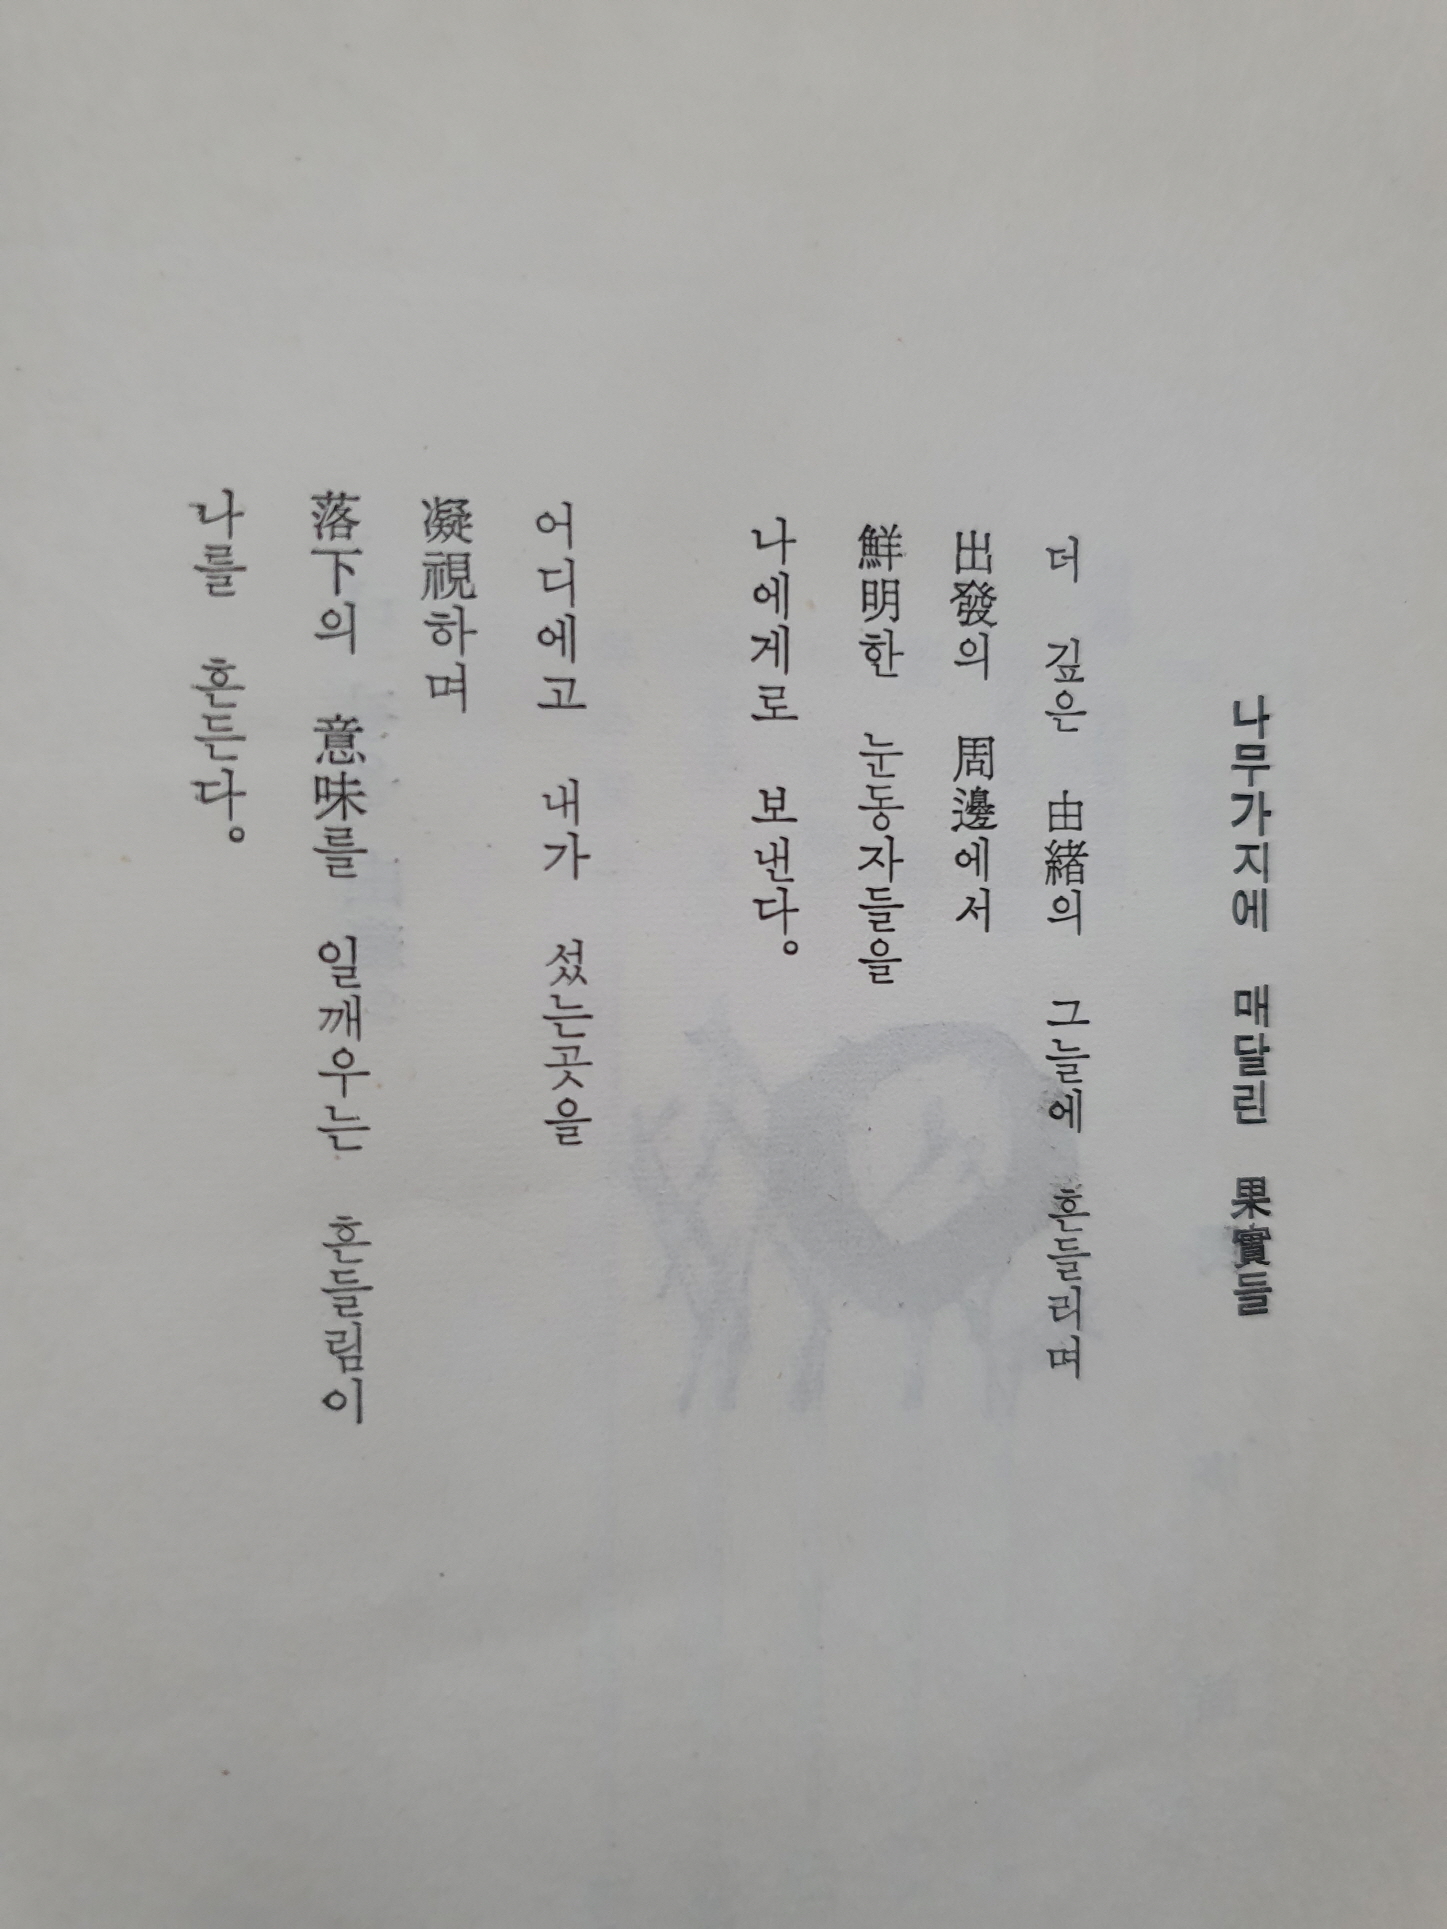 나무가지에 매달린 果實들
더 깊은 由緖의 그늘에 흔들리며
出發의 周邊에서
鮮明한 눈동자들을
나에게로 보낸다。
어디에고 내가 섰는곳을
凝視하며
落下의 意味를 일깨우는 흔들림이
나를 흔든다。